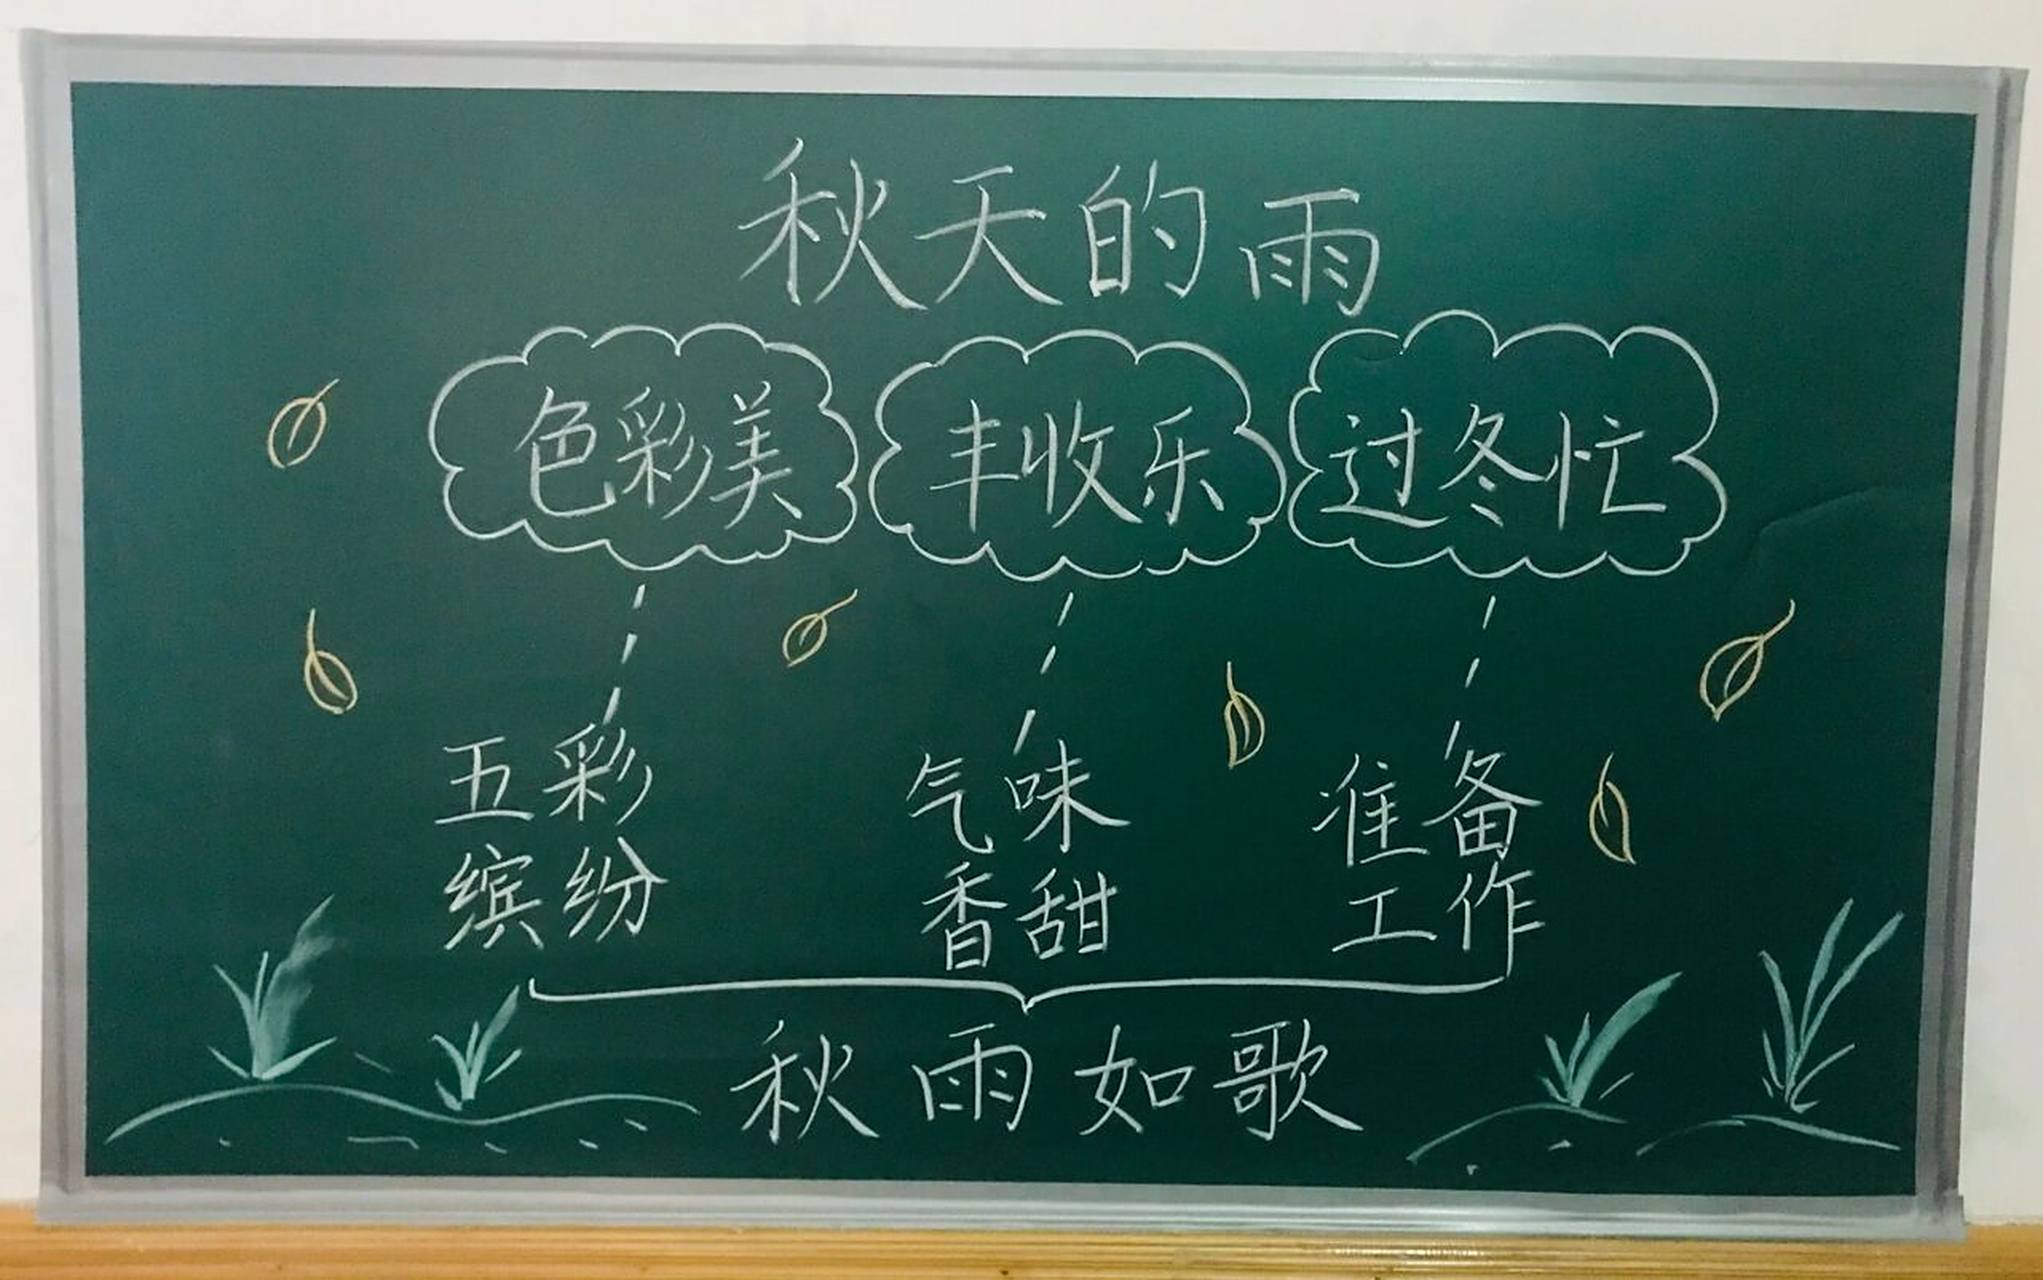 秋天的雨
色彩美 丰收乐 过冬忙
五彩 气味 准备
缤纷 香甜 工作
秋雨如歌